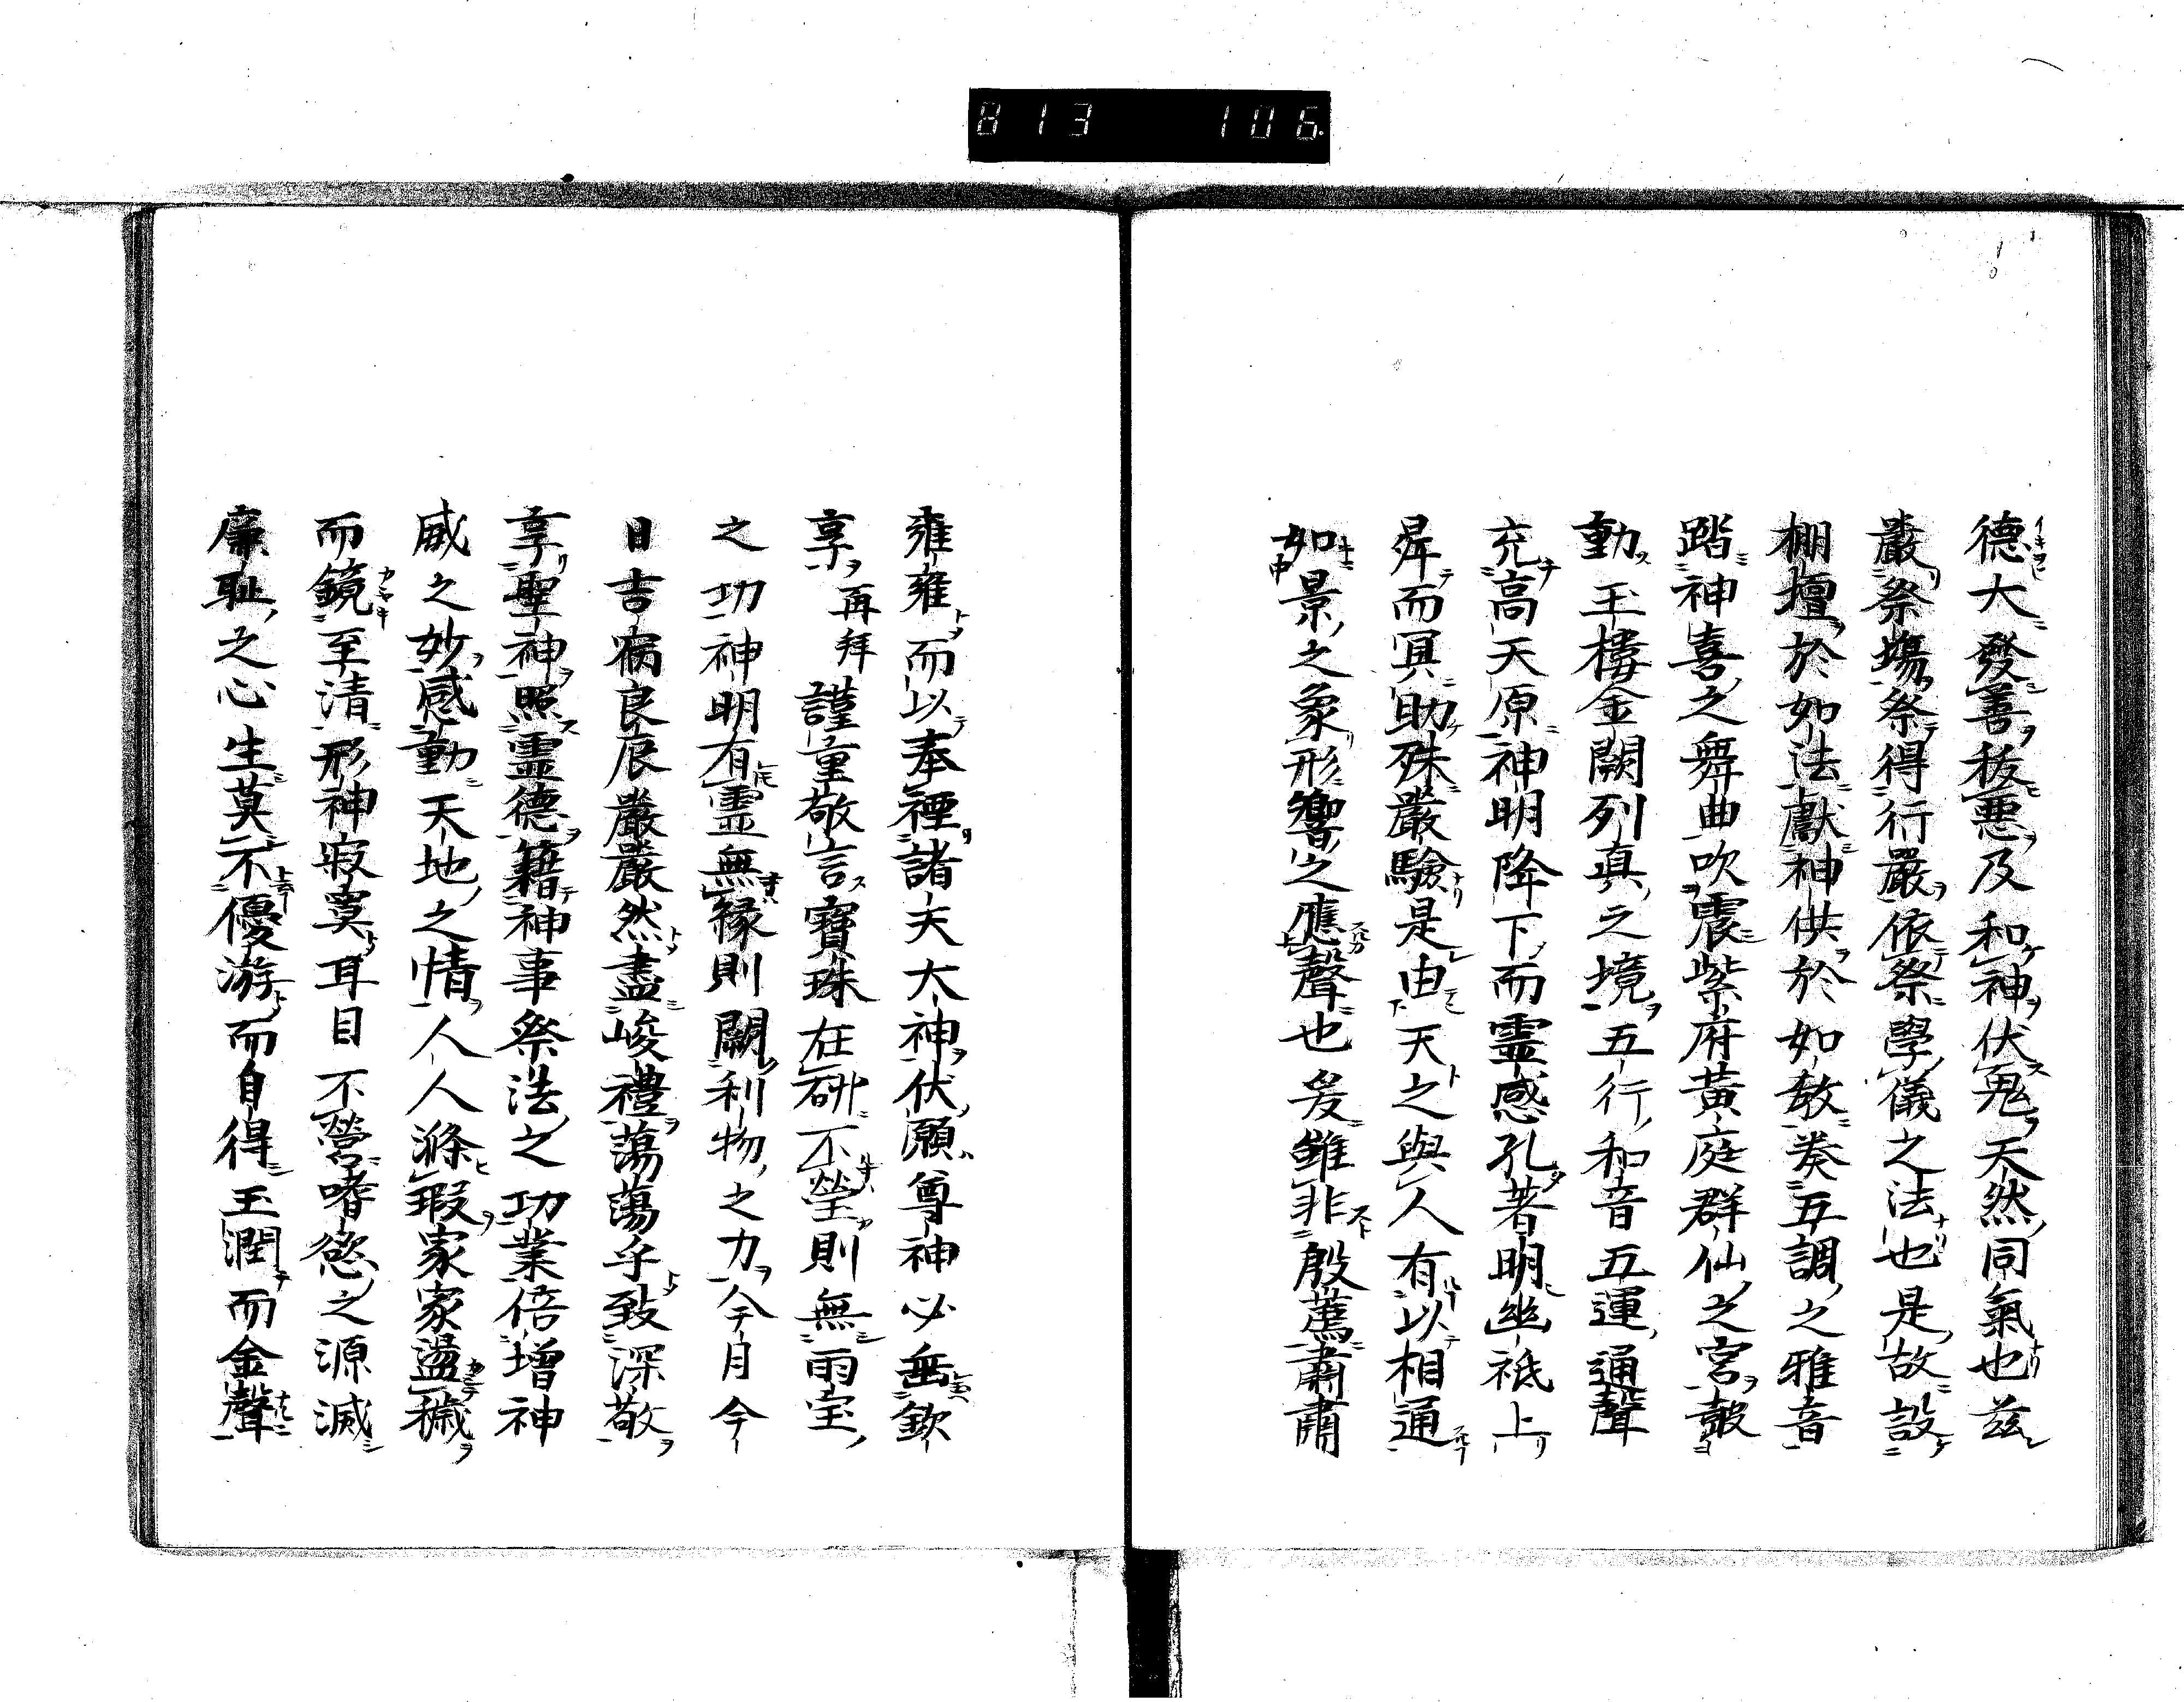 813 106.
德大發善抜悪及和神伏鬼天然同氣也茲
嚴祭場祭得行嚴依祭學儀之法也是故設
棚壇於如法獻神供於如教奏五調之雅音
踏神喜之舞曲吹震紫府黄庭群仙之宮皷
動玉樓金闕列真之境五行和音五運通聲
充高天原神明降下而霊感孔著明幽祇上
昇而冥助殊嚴驗是由天之與人有以相通
如景之象形響之應聲也爰雖非殷薦肅肅
雍雍而以奉禋諸夫大神伏願尊神必垂欽
享 再拜 謹重敬言寶珠在研不瑩則無雨宝
之功神明有霊無縁則闕利物之力今月今
日吉病良辰嚴嚴然盡峻禮蕩蕩乎致深敬
享聖神照霊德籍神事祭法之功業倍増神
威之妙感動天地之情人人滌瑕家家盪穢
而鏡至清形神寂寞耳目不營嗜慾之源滅
廉耻之心生莫不優游而自得玉潤而金聲